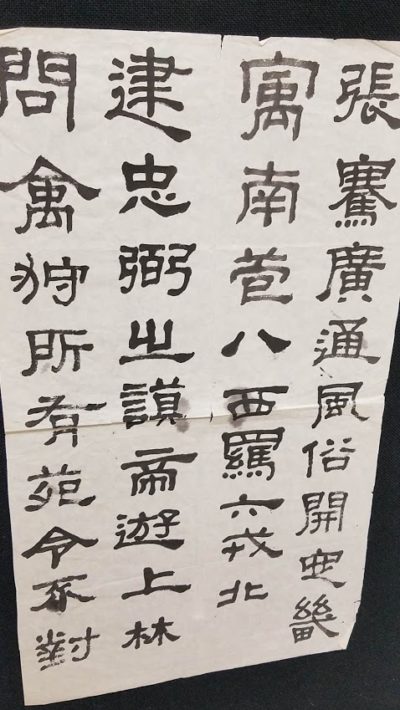 張騫廣通風俗開定畿
寓南苞八西羈六戎北
建忠弼之謨帝遊上林
問禽狩所有苑令不對